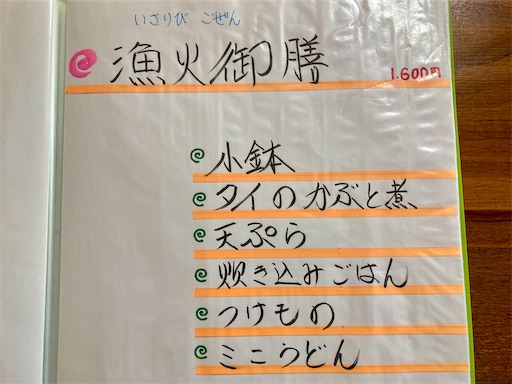 いさりび ごぜん
漁火御膳 1.600円
小鉢
タイのかぶと煮
天ぷら
炊き込みごはん
つけもの
ミニうどん